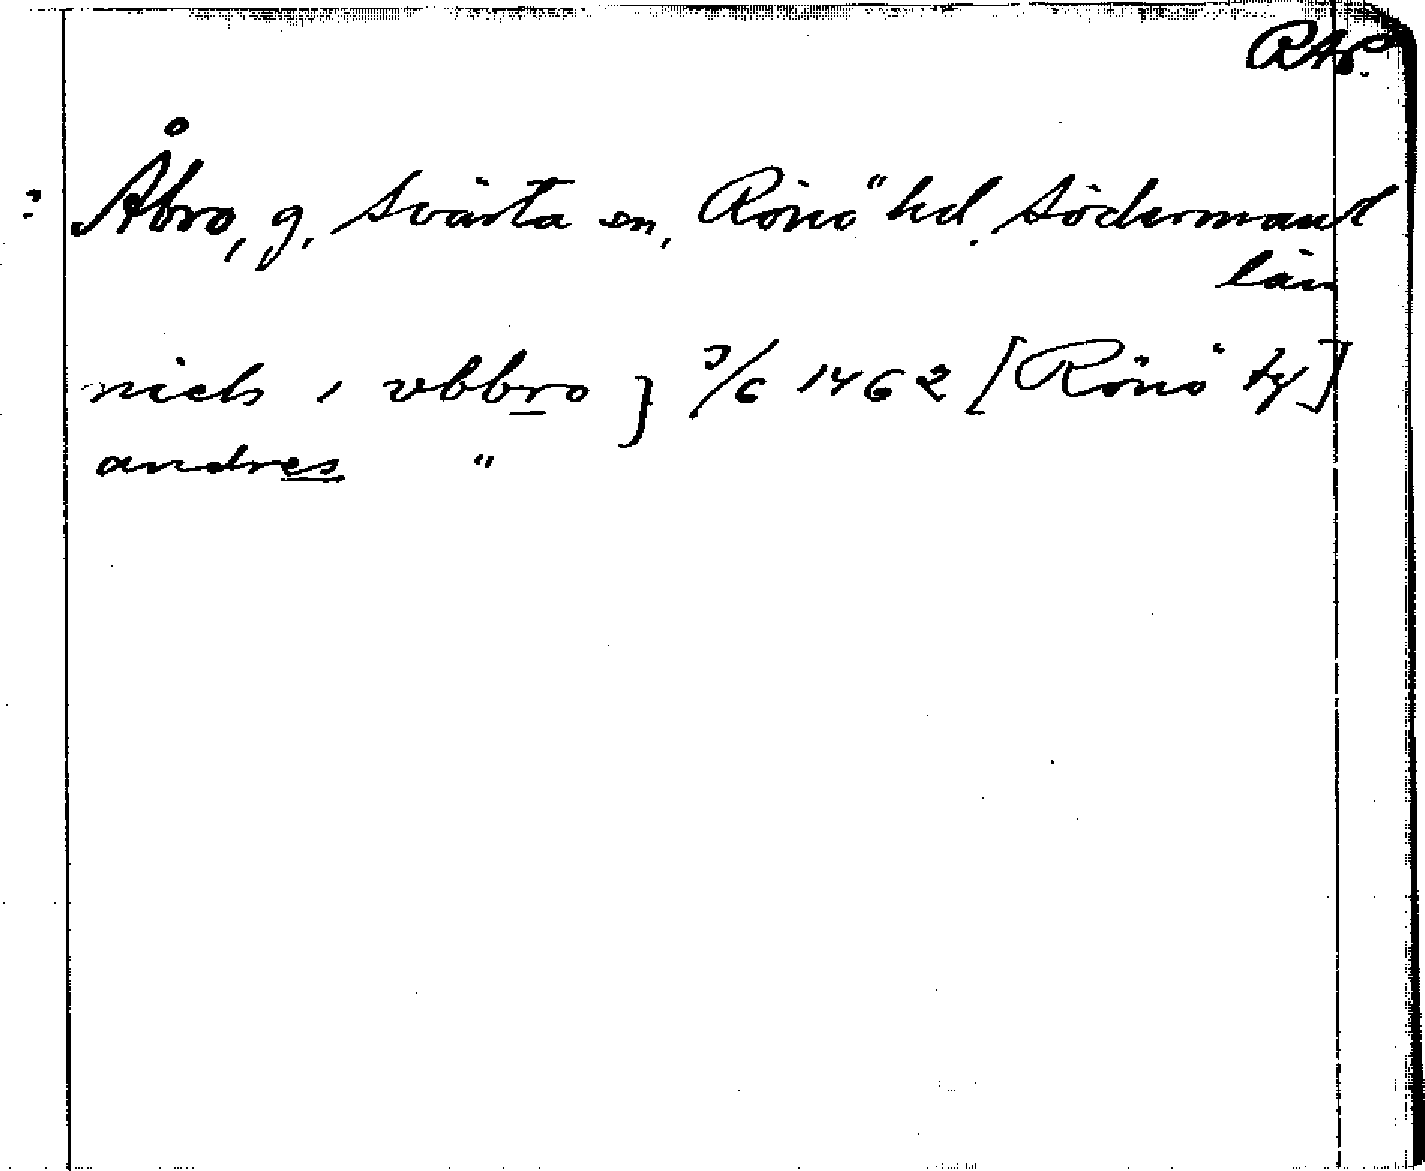 RAp.
: Åbro, g. Svärta sn, Rönö hd. Södermanl
län
niels i vbbro } 3/6 1462 [Rönö tg]
andres "